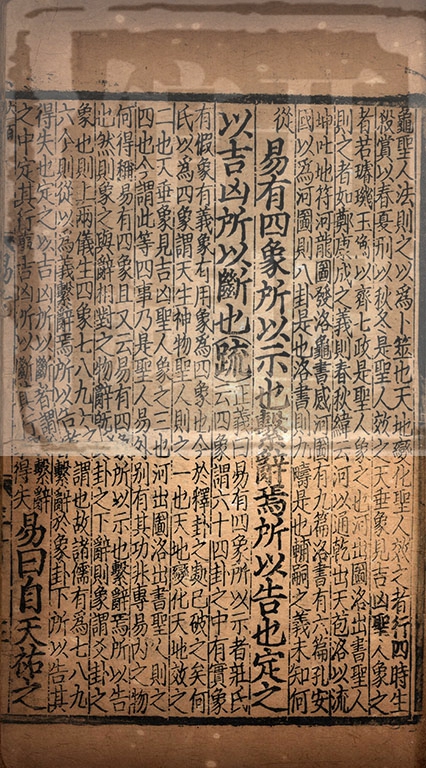 龜聖人法則之以爲卜筮也天地變化聖人效之者行四時生
殺賞以春夏刑以秋冬是聖人效之天垂象見吉凶聖人象之
者若璿璣玉衡以齊七政是聖人象之也河出圖洛出書聖人
則之者如鄭康成之義則春秋緯云河以通乾出天苞洛以流
坤吐地符河龍圖發洛龜書感河圖有九篇洛書有六篇孔安
國以爲河圖則八卦是也洛書則九疇是也輔嗣之義未知何
從 易有四象所以示也繫辭焉所以告也定之
以吉凶所以斷也疏
正義曰易有四象所以示者莊氏
云四象謂六十四卦之中有實象
有假象有義象有用象爲四象也今於釋卦之處已破之矣何
氏以爲四象謂天生神物聖人則之一也天地變化天地效之
二也天垂象見吉凶聖人象之三也河出圖洛出書聖人則之
四也今謂此等四事乃是聖人易外別有其功非專易內之物
何得稱易有四象且又云易有四象所以示也繫辭焉所以告
也然則象之與辭相對之物辭既爻卦之下辭則象謂爻卦之
象也則上兩儀生四象七八九六之謂也故諸儒有爲七八九
六今則從以爲義繫辭焉所以告者繫辭於象卦下所以告其
得失也定之以吉凶所以斷者謂於繫辭
之中定其行事吉凶所以斷其行事得失 易曰自天祐之